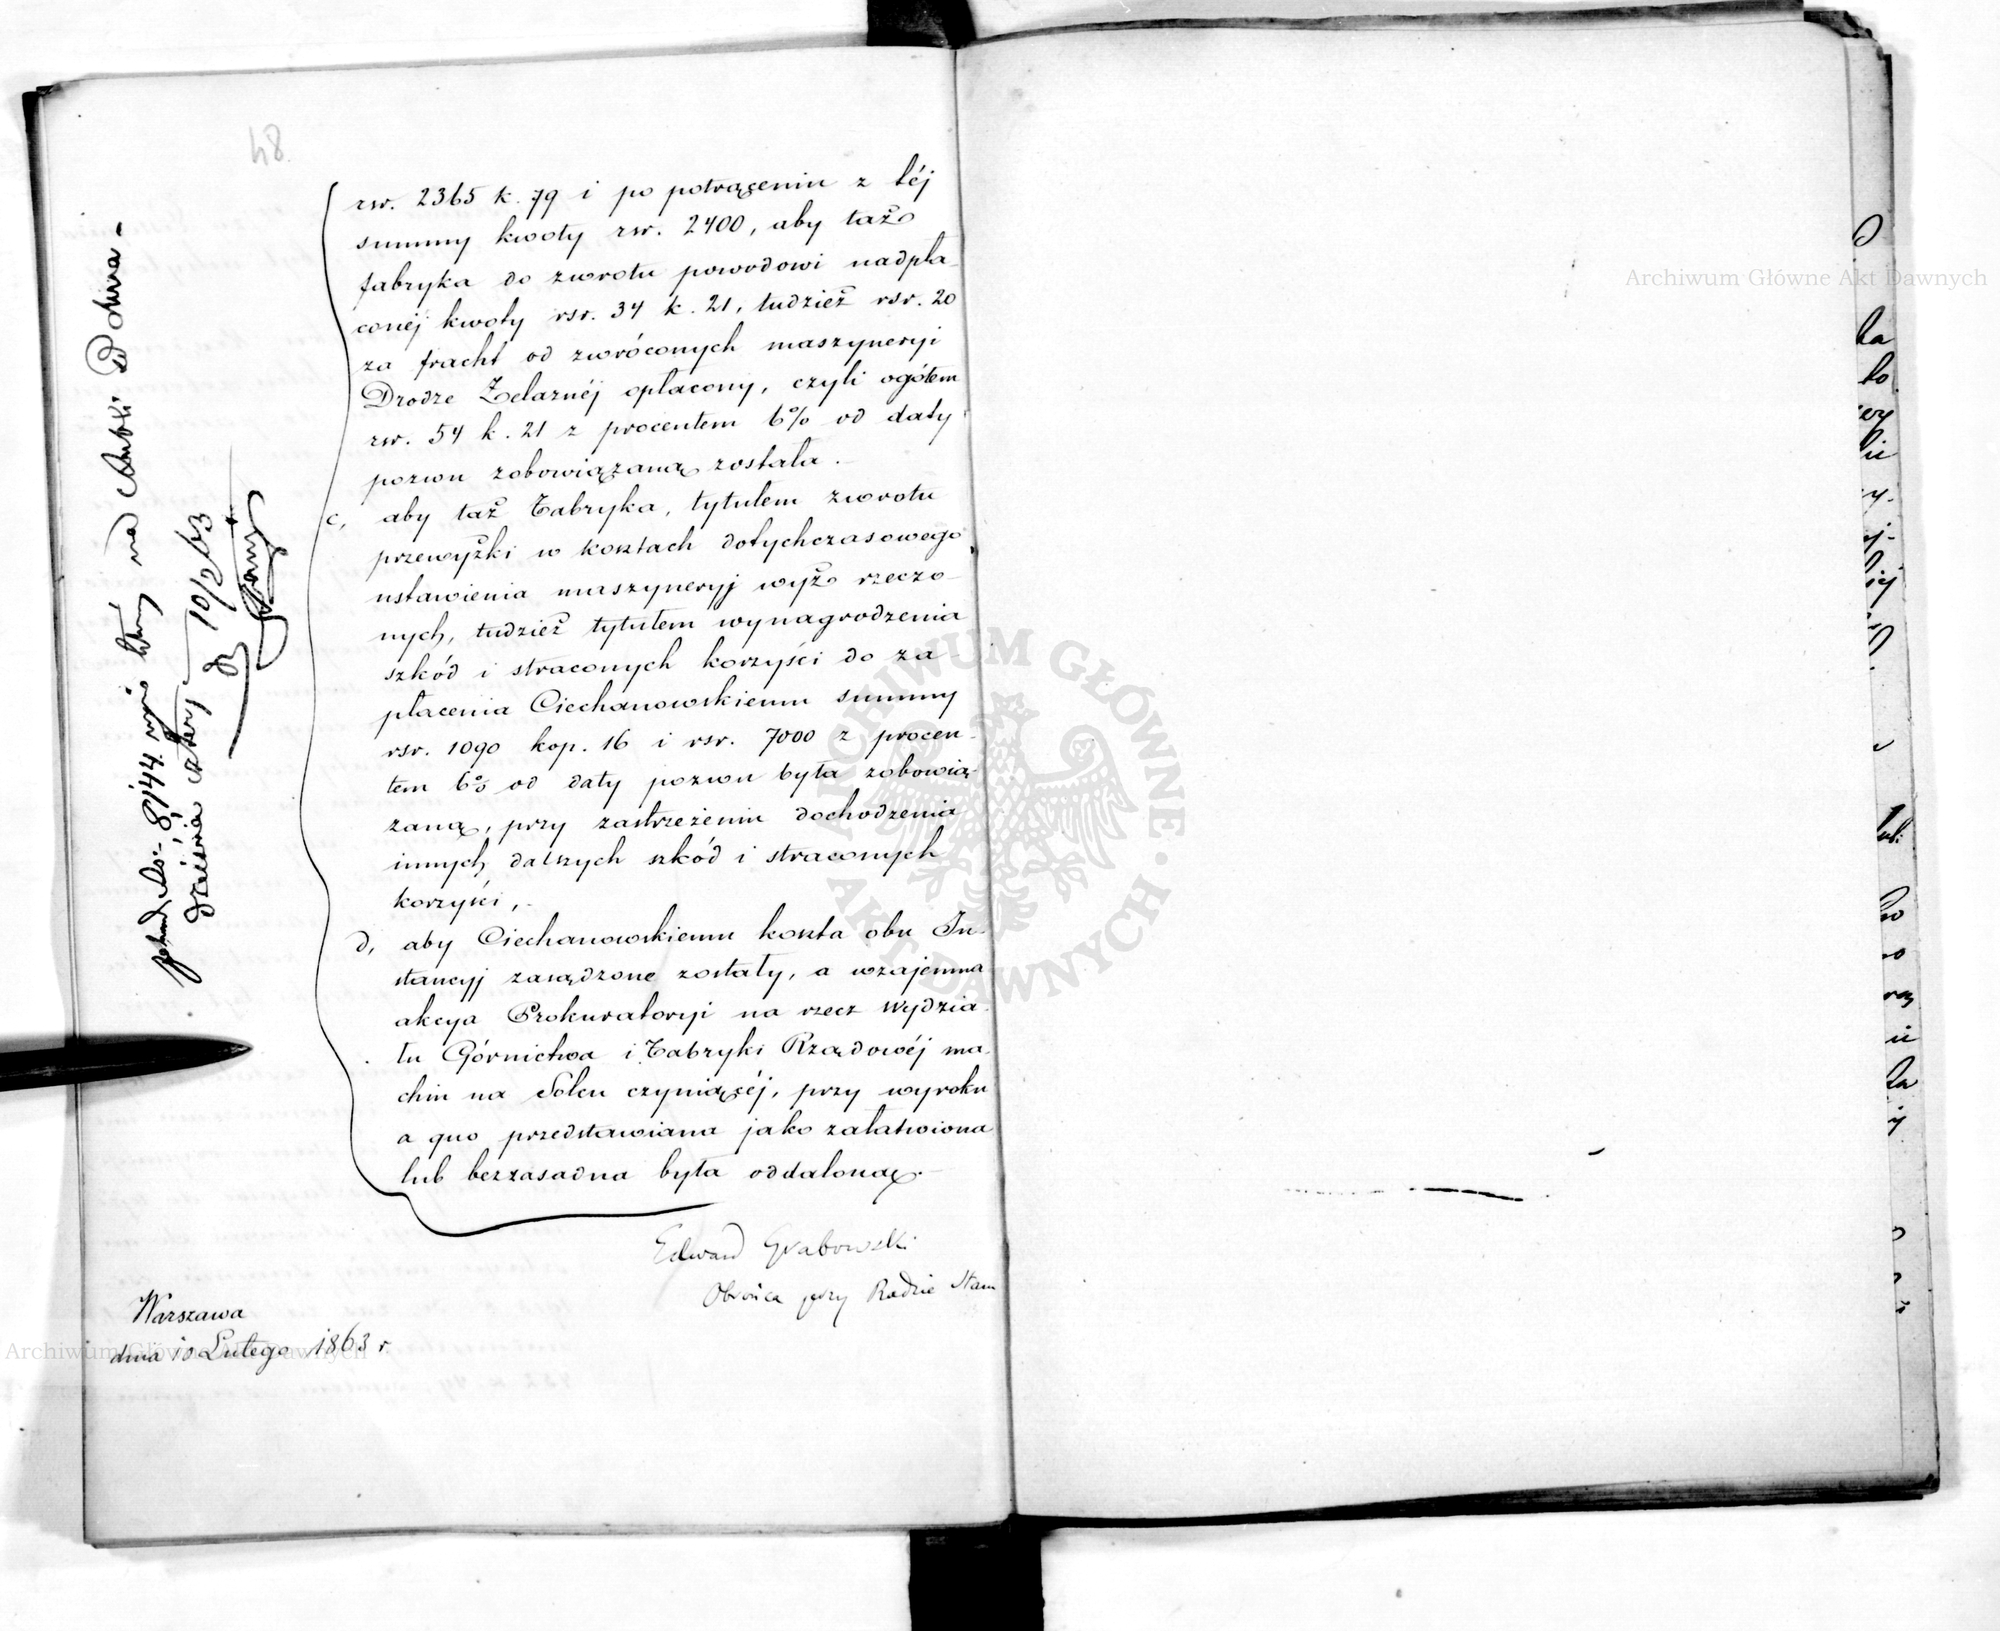 48.
rsr. 2365 k. 79 i po potrąceniu z téj
summy kwoty rsr. 2400, aby taż
fabryka do zwrotu powodowi nadpła-
conéj kwoty rsr. 34 k. 21, tudzież rsr. 20
za fracht od zwróconych maszyneryi
Drodze Żelaznéj opłacony, czyli ogółem
rsr. 54 k. 21 z procentem 6% od daty
pozwu zobowiązaną została.
c, aby taż Fabryka, tytułem zwrotu
przewyżki w kosztach dotychczasowego
ustawienia maszyneryj wyż rzeczo-
nych, tudzież tytułem wynagrodzenia
szkód i straconych korzyści do za-
płacenia Ciechanowskiemu summy
rsr. 1090 kop. 16 i rsr. 7000 z procen-
tem 6% od daty pozwu była zobowią-
zaną, przy zastrzeżeniu dochodzenia
innych dalszych szkód i straconych
korzyści,
d, aby Ciechanowskiemu koszta obu In-
stancyj zasądzone zostały, a wzajemna
akcya Prokuratoryi na rzecz Wydzia-
łu Górnictwa i Fabryki Rządowéj ma-
chin na Solcu czyniącéj, przy wyroku
a quo przedstawiana jako załatwiona
lub bezzasadna była oddaloną.
Edward Grabowski
Obrońca przy Radzie Stanu
Warszawa
dnia 10 Lutego 1863 r.
10/2 63
Archiwum Główne Akt Dawnych
Archiwum Główne Akt Dawnych
ARCHIWUM GŁÓWNE AKT DAWNYCH